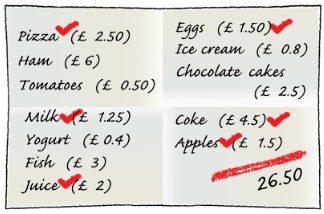 Pizza (£ 2.50)
Ham (£ 6)
Tomatoes (£ 0.50)
Milk (£ 1.25)
Yogurt (£ 0.4)
Fish (£ 3)
Juice (£ 2)
Eggs (£ 1.50)
Ice cream (£ 0.8)
Chocolate cakes
(£ 2.5)
Coke (£ 4.5)
Apples (£ 1.5)
26.50